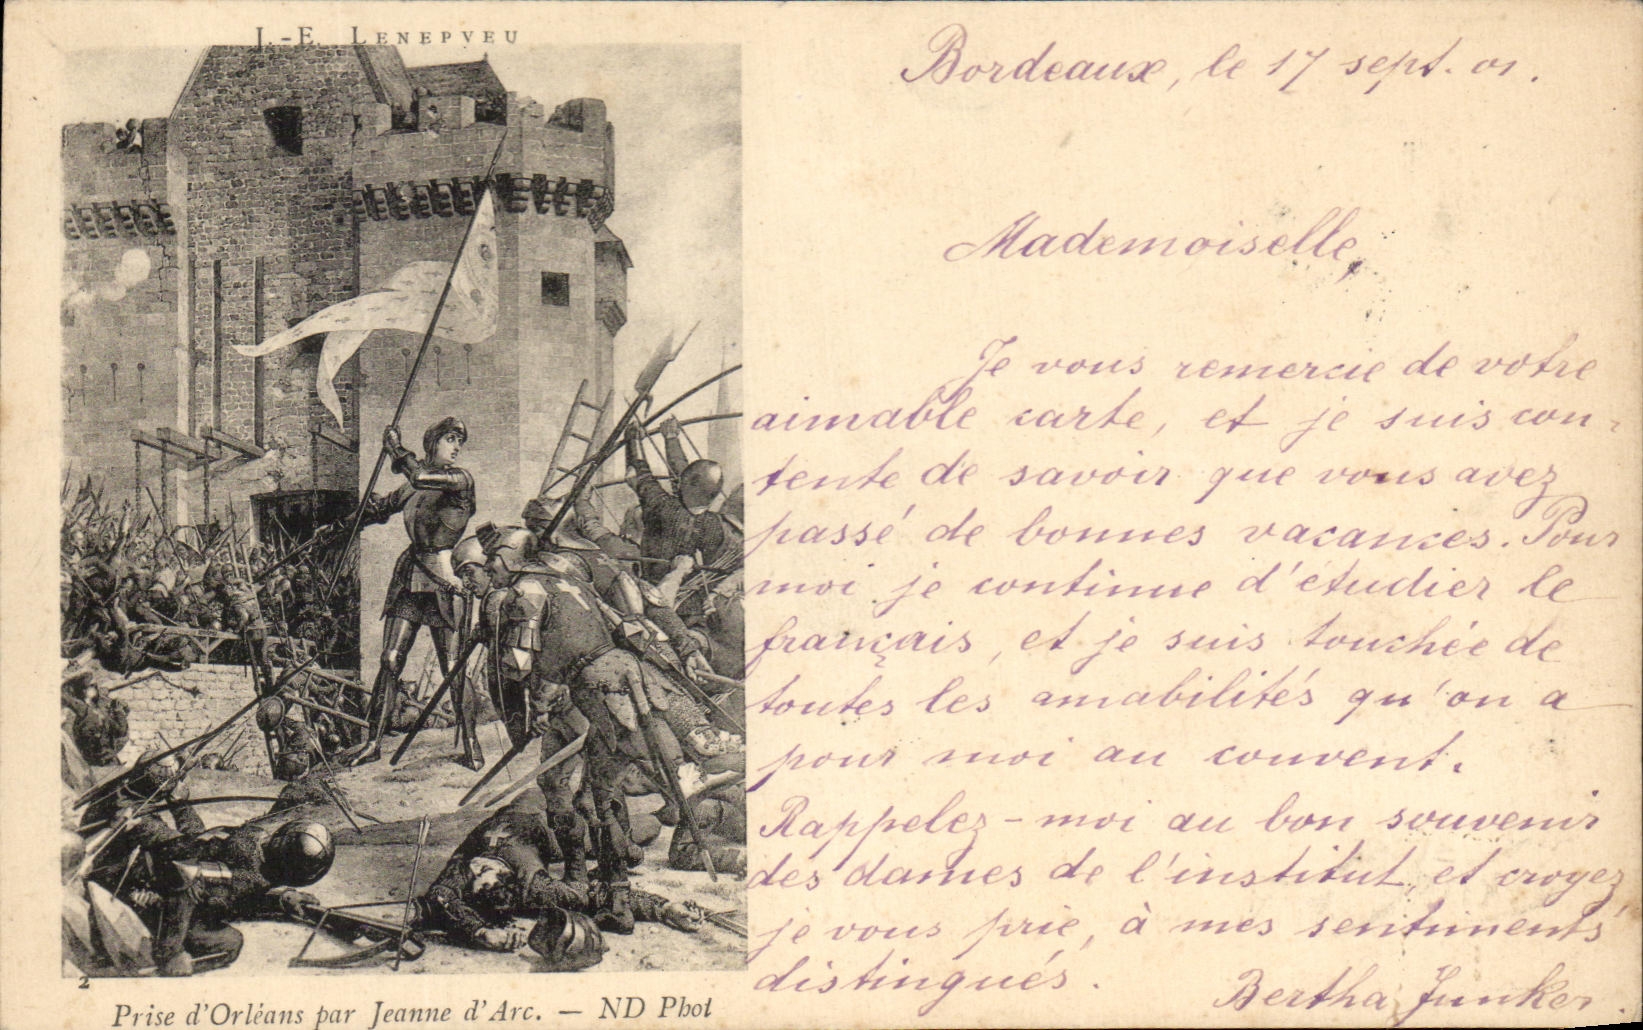 J.-E. LENEPVEU
2
Prise d'Orléans par Jeanne d'Arc. — ND Phot
Bordeaux, le 17 sept. 01.
Mademoiselle,
Je vous remercie de votre
aimable carte, et je suis con-
tente de savoir que vous avez
passé de bonnes vacances. Pour
moi je continue d'étudier le
français, et je suis touchée de
toutes les amabilités qu'on a
pour moi au couvent.
Rappelez-moi au bon souvenir
des dames de l'institut, et croyez
je vous prie, à mes sentiments
distingués.
Bertha Junker.